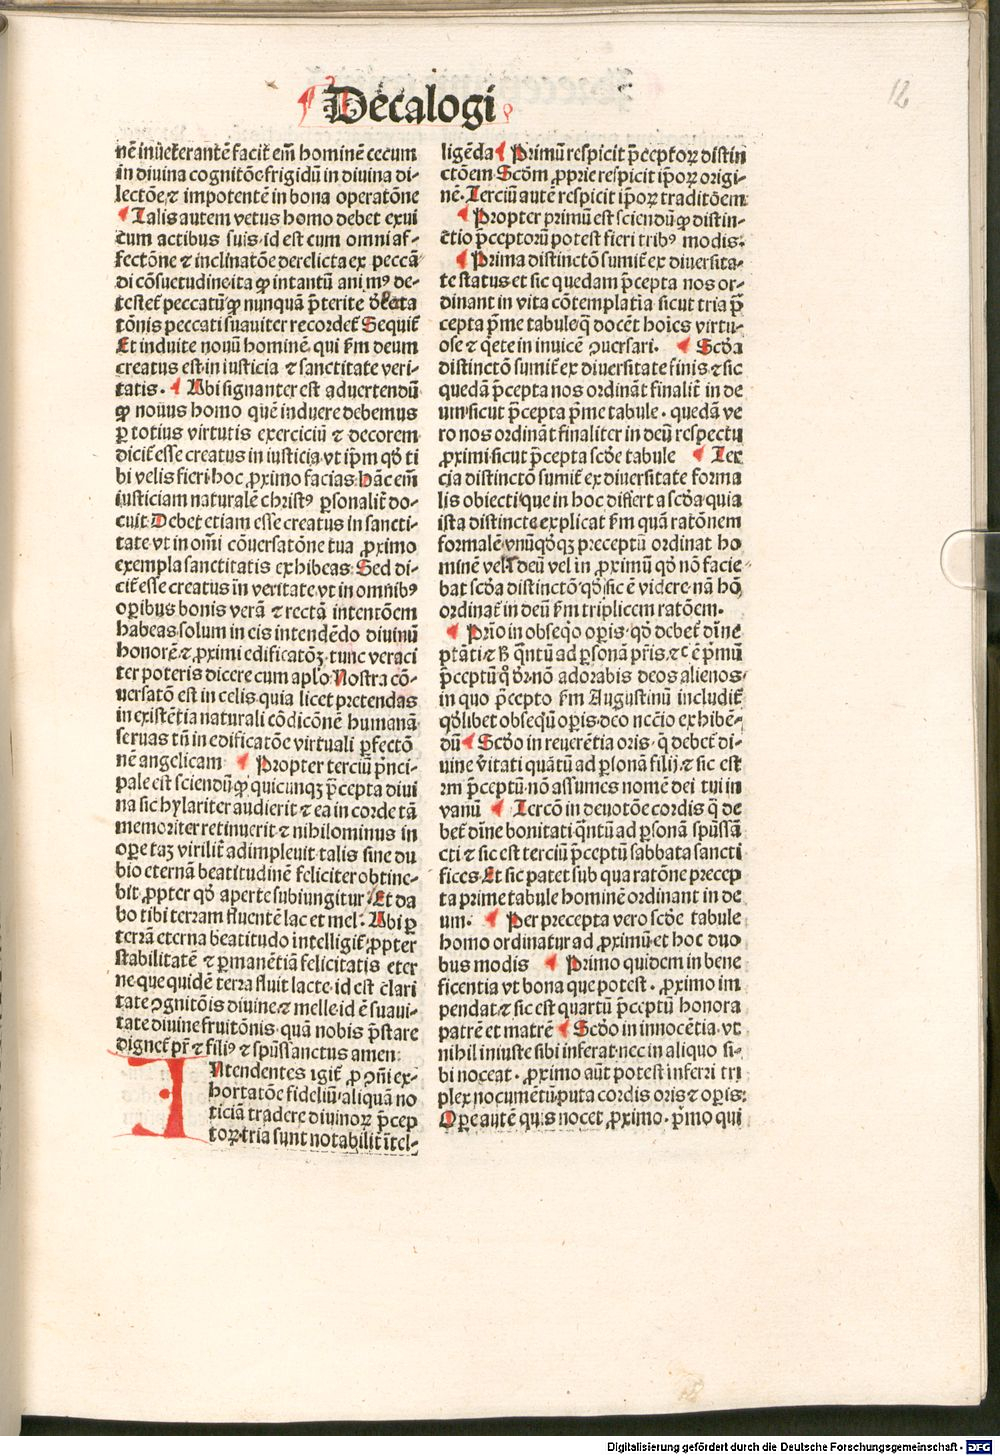 12
Decalogi
nē inūeterantē facit̄ em̄ hominē cecum
in diuina cognitōe frigidū in diuina di-
lectōe ⁊ impotentē in bona operatōne
¶ Talis autem vetus homo debet exui
cum actibus suis· id est cum omni af-
fectōne ⁊ inclinatōe derelicta ex peccā
di cōsuetudine ita ꝙ intantū animꝰ de-
testet̄ peccatū ꝙ nunquā p̄terite
tōnis peccati suauiter recordet̄ Sequit̄
Et induite nouū hominē qui ẜm deum
creatus est in iusticia ⁊ sanctitate veri-
tatis. ¶ Ubi signanter est aduertendū
ꝙ nouus homo quē induere debemus
ꝑ totius virtutis exerciciū ⁊ decorem
dicit̄ esse creatus in iusticia vt ip̄m qđ ti
bi velis fieri hoc ꝓximo facias hāc em̄
iusticiam naturalē christꝰ ꝑsonalit̄ do-
cuit Debet etiam esse creatus in sancti-
tate vt in om̄i cōuersatōne tua ꝓximo
exempla sanctitatis exhibeas Sed di-
cit̄ esse creatus in veritate vt in omnibꝰ
oꝑibus bonis verā ⁊ rectā intentōem
habeas solum in eis intendēdo diuinū
honorē ⁊ ꝓximi edificatōꝫ tunc veraci
ter poteris dicere cum aplo Nostra cō-
uersatō est in celis quia licet pretendas
in existētia naturali cōdicōnē humanā
seruas tn̄ in edificatōe virtuali ꝑfectō
nē angelicam ¶ Propter terciū p̄nci-
pale est sciendū ꝙ quicunqꝫ p̄cepta diui
na sic hylariter audierit ⁊ ea in corde tā
memoriter retinuerit ⁊ nihilominus in
oꝑe taꝫ virilit̄ adimpleuit talis sine du
bio eternā beatitudinē feliciter obtine-
bit ꝓpter qđ aperte subiungitur Et da
bo tibi terram fluentē lac et mel· Ubi ꝑ
terrā eterna beatitudo intelligit̄ ꝓpter
stabilitatē ⁊ ꝑmanētiā felicitatis eter
ne que quidē terra fluit lacte id est clari
tate ꝯgnitōis diuine ⁊ melle id ē suaui-
tate diuine fruitōnis quā nobis p̄stare
dignet̄ pr̄ ⁊ filiꝰ ⁊ spūssanctus amen:
INtendentes igit̄ ꝓ ꝯm̄i ex-
hortatōe fidelium aliquā no
ticiā tradere diuinoꝝ p̄cep
toꝝ tria sunt notabilit̄ ītel-
ligēda ¶ Primū respicit p̄ceptoꝝ distin
ctōem Scōm ꝓprie respicit ip̄oꝝ origi-
nē. Terciū autē respicit ip̄oꝝ traditōem
¶ Propter primū est sciendū ꝙ distin-
ctio p̄ceptorū potest fieri tribꝰ modis.
¶ Prima distinctō sumit̄ ex diuersita-
te status et sic quedam p̄cepta nos or-
dinant in vita cōtemplatīa sicut tria p̄
cepta p̄me tabule q̄ docēt hoīes virtu-
ose ⁊ q̄ete in inuicē ꝯuersari. ¶ Scd̄a
distinctō sumit̄ ex diuersitate finis ⁊ sic
quedā p̄cepta nos ordināt finalit̄ in de
um sicut p̄cepta p̄me tabule. quedā ve
ro nos ordināt finaliter in deū respectu
ꝓximi sicut p̄cepta scd̄e tabule ¶ Ter
cia distinctō sumit̄ ex diuersitate forma
lis obiecti que in hoc differt a scd̄a quia
ista distincte explicat ẜm quā ratōnem
formalē vnūqđqꝫ preceptū ordinat ho
minē vel ī deū vel in ꝓximū qđ nō facie-
bat scd̄a distinctō qđ sic ē videre nā hō
ordinat̄ in deū ẜm triplicem ratōem.
¶ Prīo in obseqō oꝑis qđ debet̄ dīne
ptāti ⁊ ꝗ̄ntū ad ꝑsonā pr̄is ⁊c̄ ē p̄mū
p̄ceptū nō adorabis deos alienos
in quo p̄cepto ẜm Augustinū includit̄
qđlibet obseqū oꝑis deo nc̄c̄io exhibē-
dū ¶ Scd̄o in reuerētia oris q̄ debet̄ di-
uine v̄itati quātū ad ꝑsonā filij ⁊ sic est
2m p̄ceptū nō assumes nomē dei tui in
vanū ¶ Tercō in deuotōe cordis q̄ de
bet̄ dīne bonitati q̄ntū ad ꝑsonā spūssā
cti ⁊ sic est terciū p̄ceptū sabbata sancti
fices Et sic patet sub qua ratōne precep
ta prime tabule hominē ordinant in de
um. ¶ Per precepta vero scd̄e tabule
homo ordinatur ad ꝓximū et hoc duo
bus modis ¶ Primo quidem in bene
ficentia vt bona que potest. ꝓximo im
pendat ⁊ sic est quartū p̄ceptū honora
patrē et matrē ¶ Scd̄o in innocētia vt
nihil iniuste sibi inferat nec in aliquo si-
bi noceat. ꝓximo aūt potest inferri tri
plex nocumētū puta cordis oris ⁊ oꝑis:
Oꝑe autē quis nocet ꝓximo. p̄mo qui
Digitalisierung gefördert durch die Deutsche Forschungsgemeinschaft - DFG